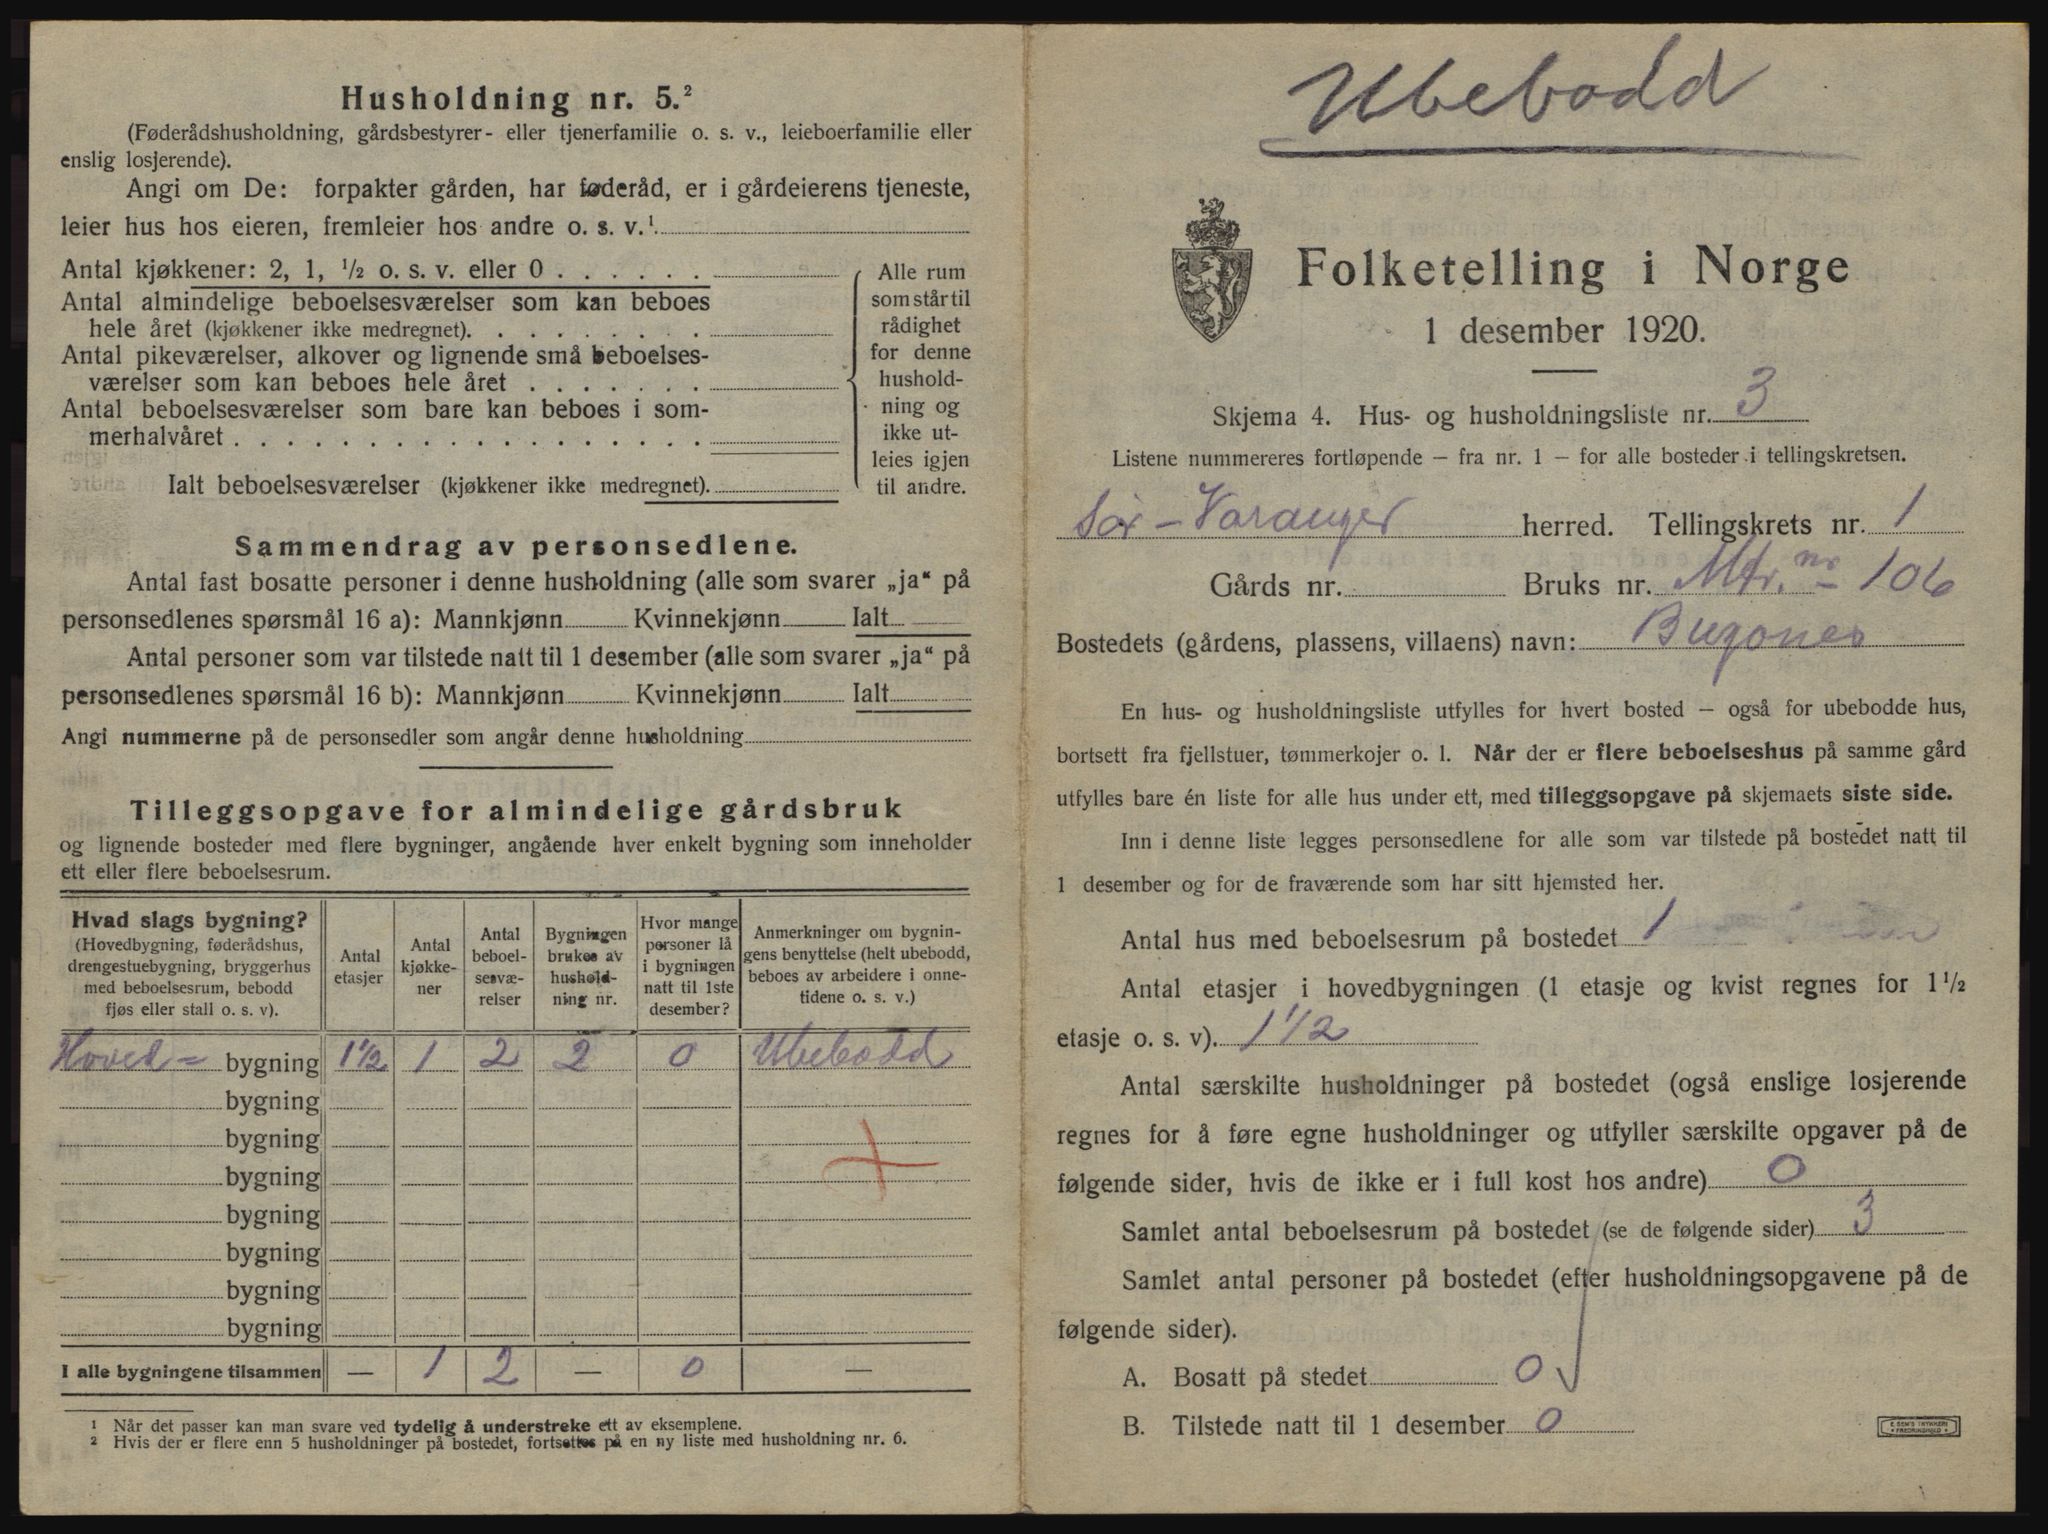 Husholdning nr. 5.²
(Føderådshusholdning, gårdsbestyrer- eller tjenerfamilie o. s. v., leieboerfamilie eller
enslig losjerende).
Angi om De: forpakter gården, har føderåd, er i gårdeierens tjeneste,
leier hus hos eieren, fremleier hos andre o. s. v.¹
Antal kjøkkener: 2, 1, ½ o. s. v. eller 0
Antal almindelige beboelsesværelser som kan beboes
hele året (kjøkkener ikke medregnet).
Antal pikeværelser, alkover og lignende små beboelses-
værelser som kan beboes hele året
Antal beboelsesværelser som bare kan beboes i som-
merhalvåret
Ialt beboelsesværelser (kjøkkener ikke medregnet).
Alle rum
som står til
rådighet
for denne
hushold-
ning og
ikke ut-
leies igjen
til andre.
Sammendrag av personsedlene.
Antal fast bosatte personer i denne husholdning (alle som svarer „ja“ på
personsedlenes spørsmål 16 a): Mannkjønn Kvinnekjønn Ialt
Antal personer som var tilstede natt til 1 desember (alle som svarer „ja“ på
personsedlenes spørsmål 16 b): Mannkjønn Kvinnekjønn Ialt
Angi nummerne på de personsedler som angår denne husholdning
Tilleggsopgave for almindelige gårdsbruk
og lignende bosteder med flere bygninger, angående hver enkelt bygning som inneholder
ett eller flere beboelsesrum.
Hvad slags bygning?
(Hovedbygning, føderådshus,
drengestuebygning, bryggerhus
med beboelsesrum, bebodd
fjøs eller stall o. s. v).
Antal
etasjer
Antal
kjøkke-
ner
Antal
beboel-
sesvæ-
relser
Bygningen
brukes av
hushold-
ning nr.
Hvor mange
personer lå
i bygningen
natt til 1ste
desember?
Anmerkninger om bygnin-
gens benyttelse (helt ubebodd,
beboes av arbeidere i onne-
tidene o. s. v.)
Hoved- bygning 1½ 1 2 2 0 Ubebodd
bygning
bygning
bygning
bygning
bygning
bygning
bygning
I alle bygningene tilsammen — 1 2 — 0 —
¹ Når det passer kan man svare ved tydelig å understreke ett av eksemplene.
² Hvis der er flere enn 5 husholdninger på bostedet, fortsettes på en ny liste med husholdning nr. 6.
Ubebodd
Folketelling i Norge
1 desember 1920.
Skjema 4. Hus- og husholdningsliste nr. 3
Listene nummereres fortløpende – fra nr. 1 – for alle bosteder i tellingskretsen.
Sør-Varanger herred. Tellingskrets nr. 1
Gårds nr. Bruks nr. Mtr. nr 106
Bostedets (gårdens, plassens, villaens) navn: Bugønes
En hus- og husholdningsliste utfylles for hvert bosted – også for ubebodde hus,
bortsett fra fjellstuer, tømmerkojer o. l. Når der er flere beboelseshus på samme gård
utfylles bare én liste for alle hus under ett, med tilleggsopgave på skjemaets siste side.
Inn i denne liste legges personsedlene for alle som var tilstede på bostedet natt til
1 desember og for de fraværende som har sitt hjemsted her.
Antal hus med beboelsesrum på bostedet 1
Antal etasjer i hovedbygningen (1 etasje og kvist regnes for 1½
etasje o. s. v). 1½
Antal særskilte husholdninger på bostedet (også enslige losjerende
regnes for å føre egne husholdninger og utfyller særskilte opgaver på de
følgende sider, hvis de ikke er i full kost hos andre) 0
Samlet antal beboelsesrum på bostedet (se de følgende sider) 3
Samlet antal personer på bostedet (efter husholdningsopgavene på de
følgende sider).
A. Bosatt på stedet 0
B. Tilstede natt til 1 desember 0
E. SEM'S TRYKKERI
• FREDRIKSHALD •